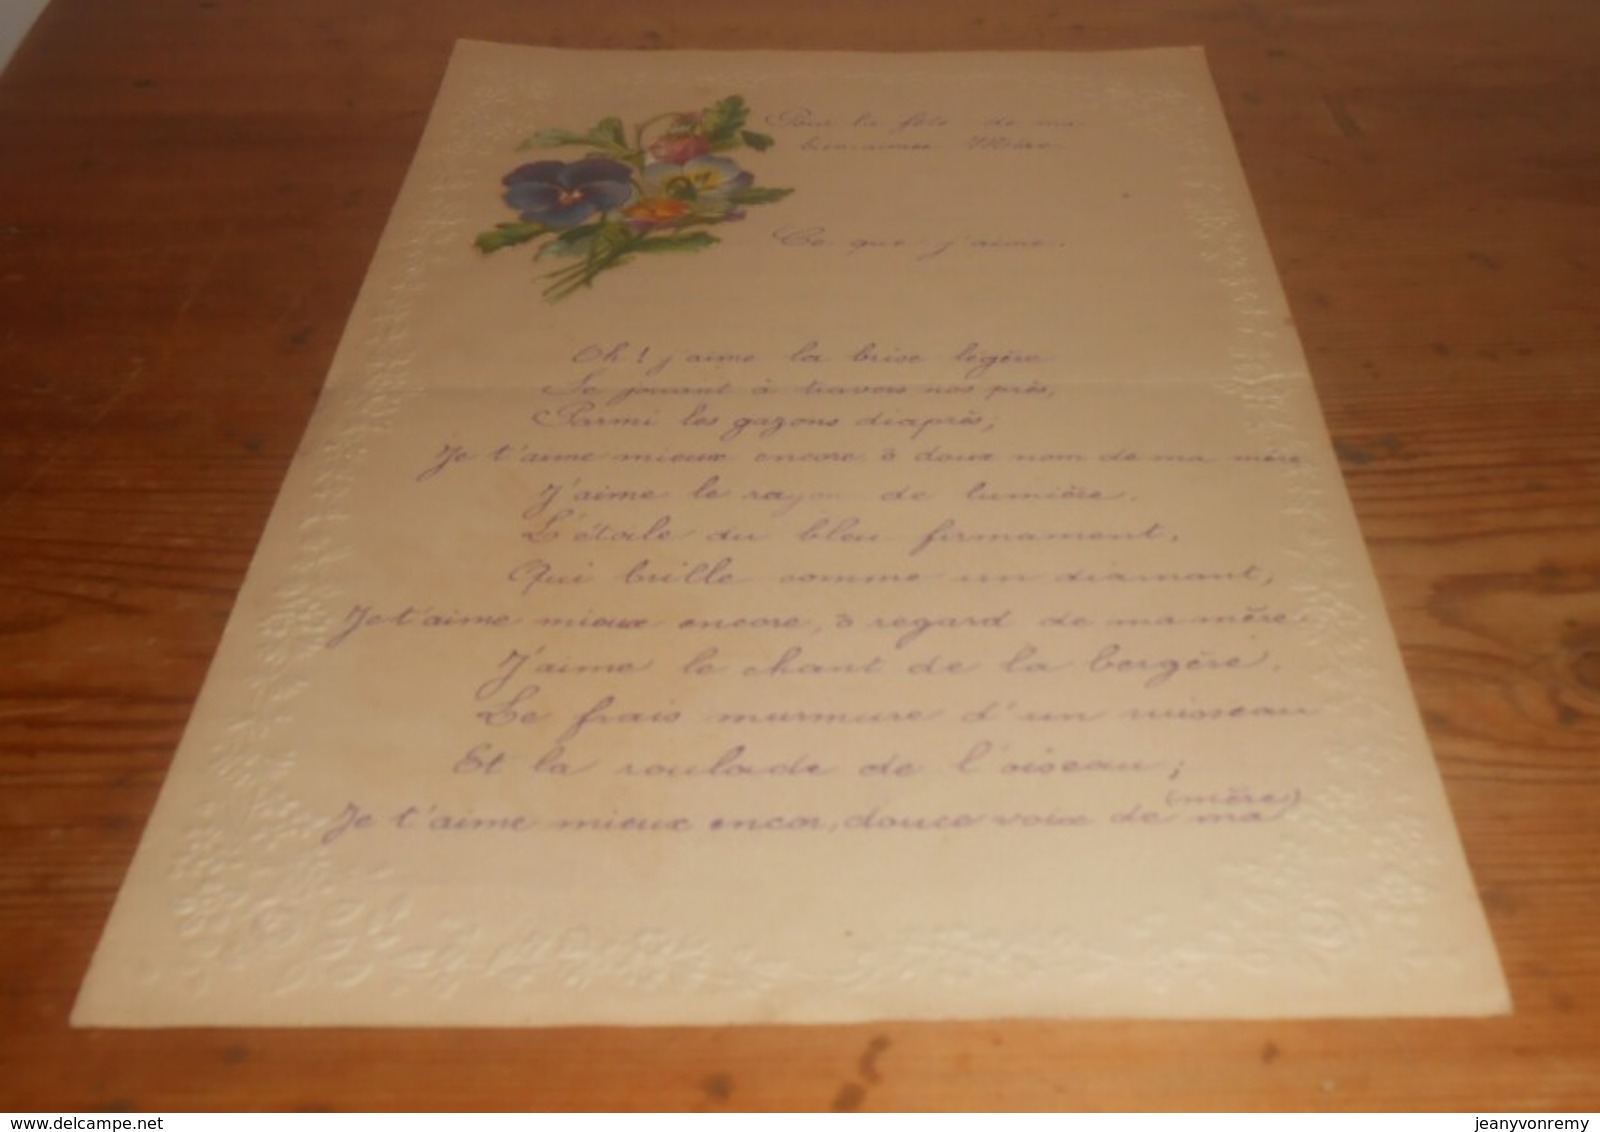 Pour la fête de ma
bien-aimée Mère.
Ce que j'aime.
Oh ! j'aime la brise légère
Se jouant à travers nos prés,
Parmi les gazons diaprés;
Je t'aime mieux encore, ô doux nom de ma mère
J'aime le rayon de lumière.
L'étoile du bleu firmament,
Qui brille comme un diamant,
Je t'aime mieux encore, ô regard de ma mère.
J'aime le chant de la bergère.
Le frais murmure d'un ruisseau
Et la roulade de l'oiseau;
Je t'aime mieux encor, douce voix de ma (mère)
www.delcampe.net
jeanyvonremy